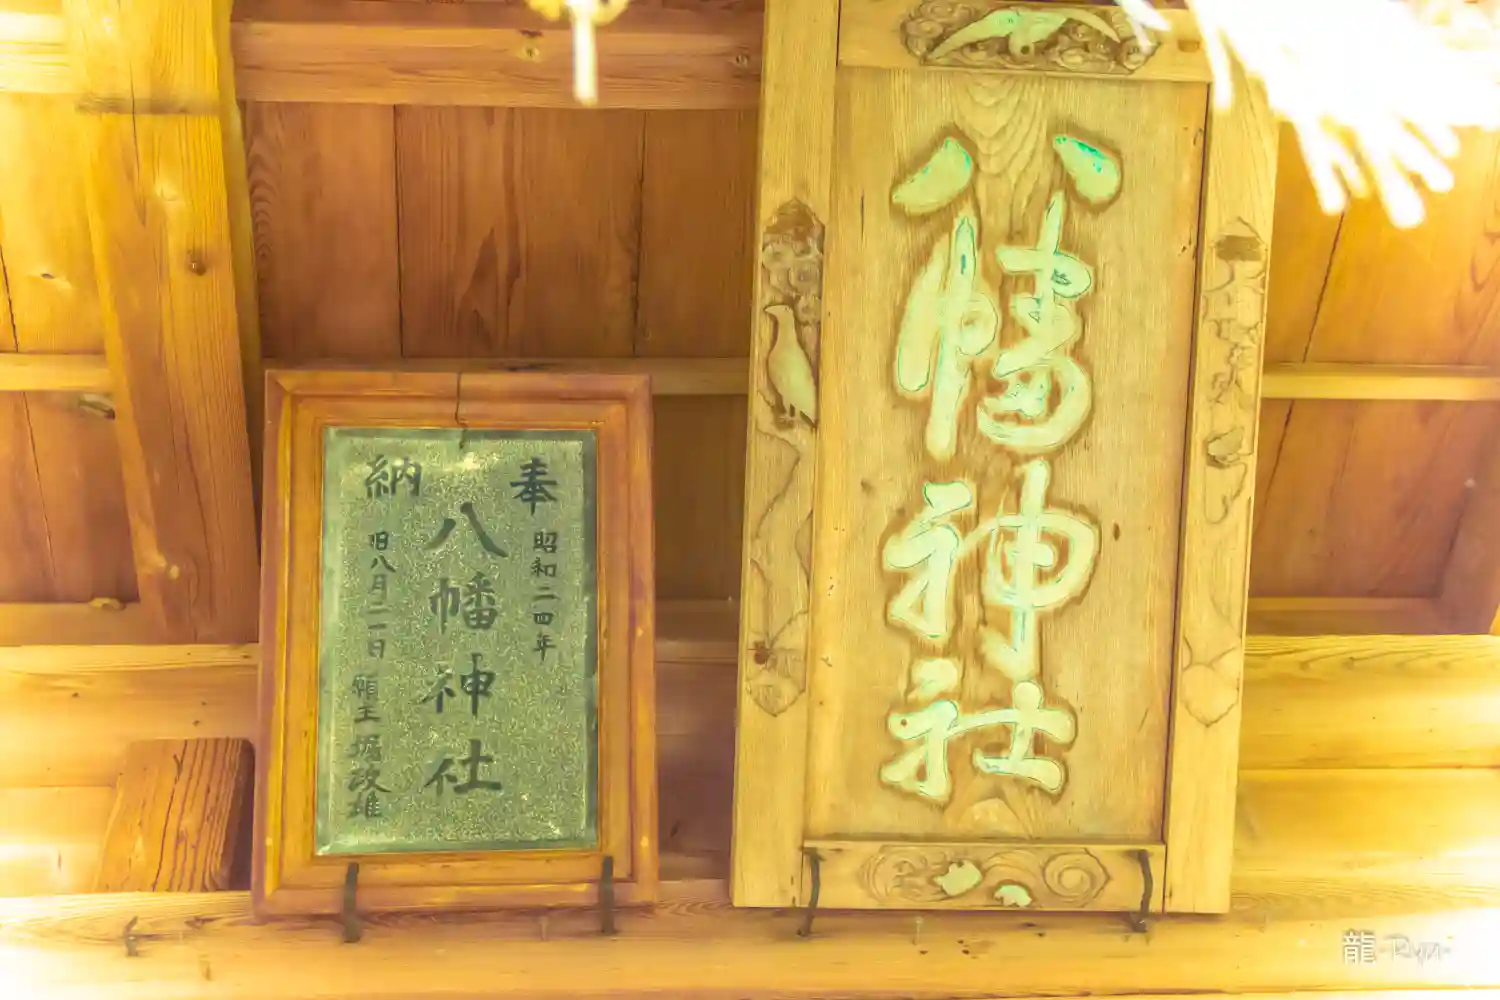 八幡神社
奉納
昭和二四年
八幡神社
旧八月二一日 願主 堀政雄
龍-Ryu-